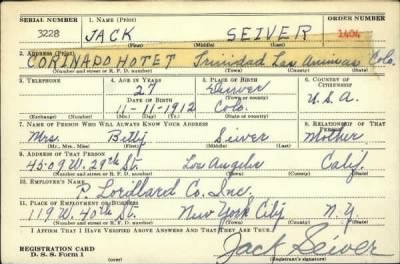 SERIAL NUMBER 1. NAME (Print) ORDER NUMBER
3228 JACK SEIVER 1404
(First) (Middle) (Last)
2. ADDRESS (Print)
CORINADO HOTET Trinidad Las Animas Colo.
(Number and street or R. F. D. number) (Town) (County) (State)
3. TELEPHONE 4. AGE IN YEARS 5. PLACE OF BIRTH 6. COUNTRY OF CITIZENSHIP
27 Denver
DATE OF BIRTH (Town or county) U.S.A.
11-11-1912 Colo.
(Exchange) (No.) (Mo.) (Day) (Yr.) (State or country)
7. NAME OF PERSON WHO WILL ALWAYS KNOW YOUR ADDRESS 8. RELATIONSHIP OF THAT PERSON
Mrs. Billy Seiver Mother
(Mr., Mrs., Miss) (First) (Middle) (Last)
9. ADDRESS OF THAT PERSON
4509 W. 29th St. Los Angeles Calif.
(Number and street or R. F. D. number) (Town) (County) (State)
10. EMPLOYER'S NAME
P. Lordllard Co. Inc.
11. PLACE OF EMPLOYMENT OR BUSINESS
119 W. 40th St. New York City N. Y.
(Number and street or R. F. D. number) (Town) (County) (State)
I AFFIRM THAT I HAVE VERIFIED ABOVE ANSWERS AND THAT THEY ARE TRUE.
REGISTRATION CARD
D. S. S. Form 1 (over) Jack Seiver
(Registrant's signature)